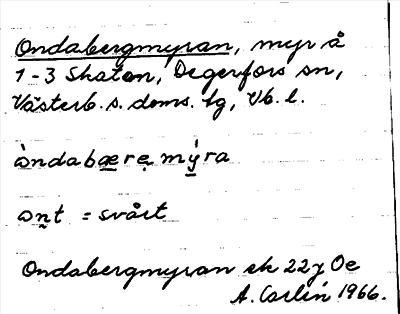 Ondabergmyran, myr å
1-3 Skatan, Degerfors sn,
Västerb. s. doms. tg, Vb. l.
òndabærẹmýra
ωn̰t = svårt
Ondabergmyran ek 22 y Oe
A. Carlin 1966.